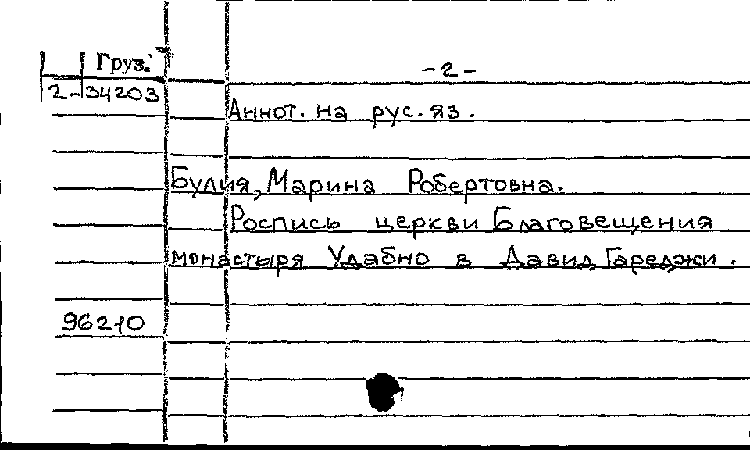 Груз.
-2-
2-34203
Аннот. на рус. яз.
Булия, Марина Робертовна.
Роспись церкви Благовещения
монастыря Удабно в Давид Гареджи.
96210